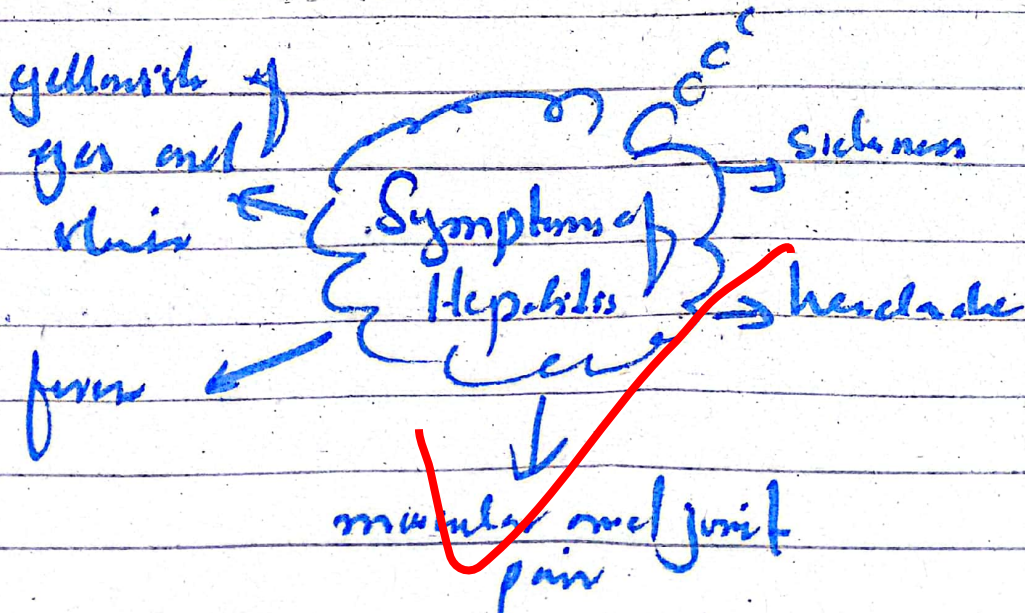 yellowish of
eyes and
skin
Sickness
Symptoms of
Hepatitis
headache
fever
muscular and joint
pain